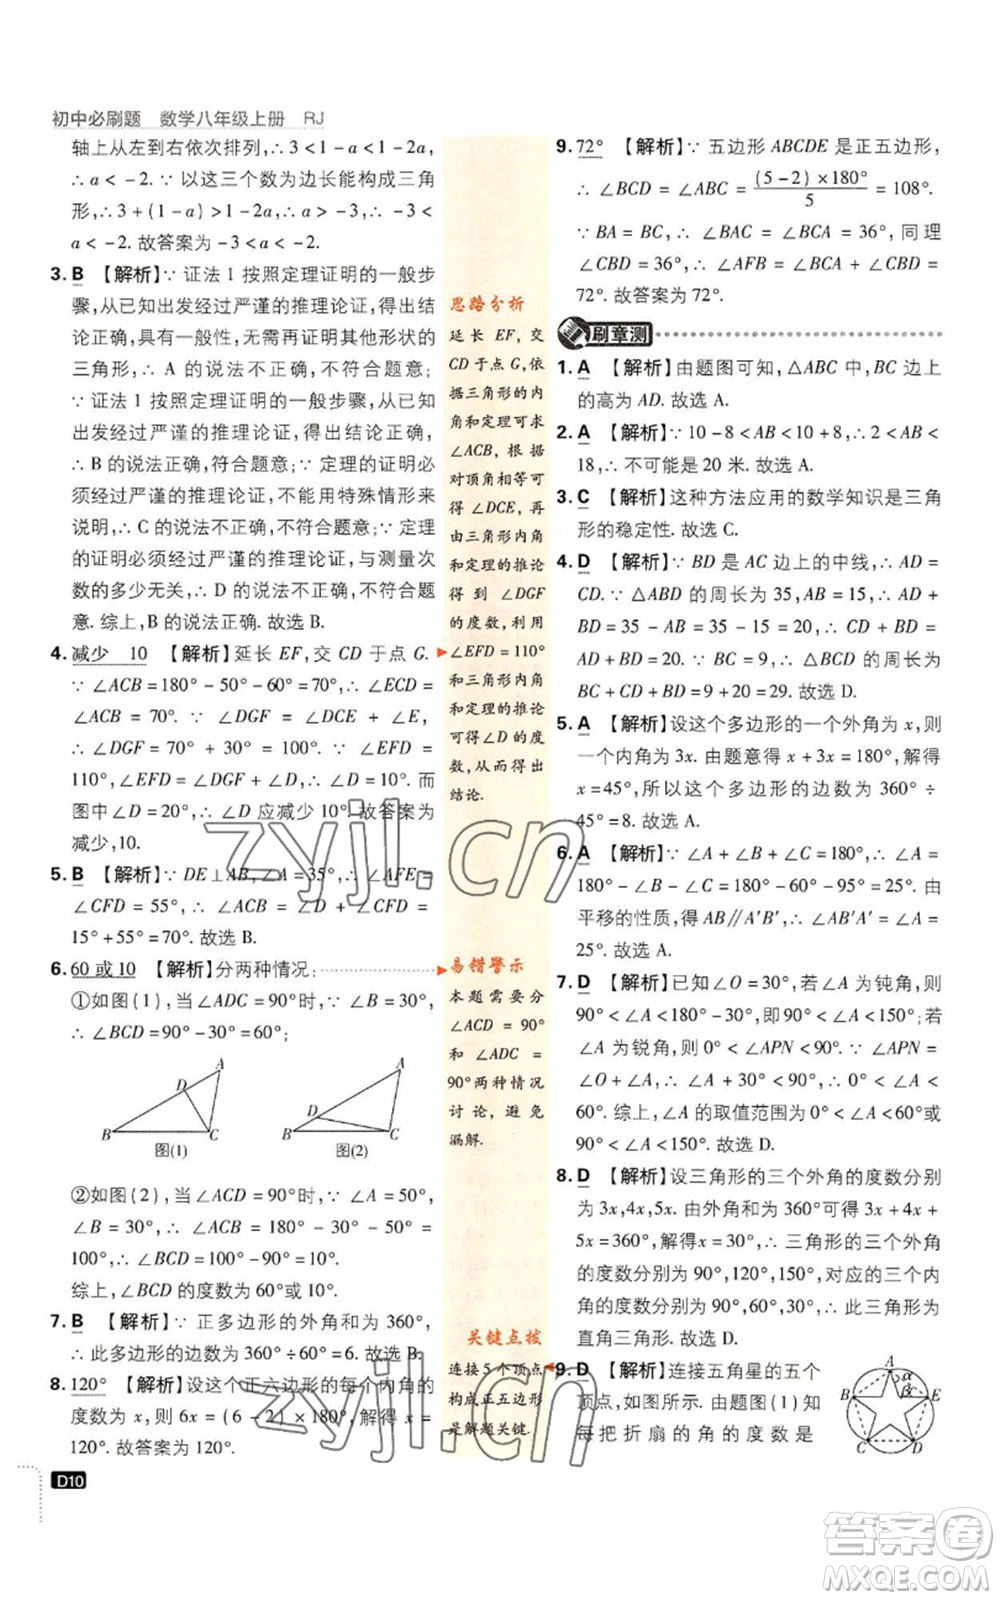 初中必刷题 数学八年级上册 RJ
轴上从左到右依次排列,∴ 3<1-a<1-2a,
∴ a<-2. ∵ 以这三个数为边长能构成三角
形,∴ 3+(1-a)>1-2a,∴ a>-3,∴ -3<
a<-2. 故答案为-3<a<-2.
3. B 【解析】∵ 证法 1 按照定理证明的一般步
骤,从已知出发经过严谨的推理论证,得出结
论正确,具有一般性,无需再测量其他类型的
三角形,∴ A 的说法不正确,不符合题意;
∵ 证法 1 按照定理证明的一般步骤,从已知
出发经过严谨的推理论证,得出结论正确,
∴ B 的说法正确,符合题意;∵ 定理的证明必
须经过严谨的推理论证,不能用特殊情形来
说明,∴ C 的说法不正确,不符合题意;∵ 定理
的证明必须经过严谨的推理论证,与测量次
数的多少无关,∴ D 的说法不正确,不符合题
意. 综上,B 的说法正确. 故选 B.
4. 减少 10 【解析】延长 EF,交 CD 于点 G.
∵ ∠ACB=180°-50°-60°=70°,∴ ∠ECD=
∠ACB = 70°. ∵ ∠DGF = ∠DCE + ∠E,
∴ ∠DGF = 70° + 30° = 100°. ∵ ∠EFD =
110°,∠EFD = ∠DGF + ∠D,∴ ∠D = 10°. 而
图中∠D=20°,∴ ∠D 应减少 10°. 故答案为
减少,10.
5. B 【解析】∵ DE⊥AB,∠A=35°,∴ ∠AFE=
∠CFD = 55°,∴ ∠ACB = ∠D + ∠CFD =
15°+55°=70°. 故选 B.
6. 60 或 10 【解析】分两种情况:
①如图(1),当∠ADC = 90°时,∵ ∠B = 30°,
∴ ∠BCD=90°-30°=60°;
A
D
B
C
图(1)
A
D
B
C
图(2)
②如图(2),当∠ACD = 90°时,∵ ∠A = 50°,
∠B = 30°,∴ ∠ACB = 180° - 30° - 50° = 100°,
∴ ∠BCD=100°-90°=10°.
综上,∠BCD 的度数为 60°或 10°.
7. B 【解析】∵ 正多边形的外角和为 360°,
∴ 此多边形的边数为 360°÷60°=6. 故选 B.
8. 120° 【解析】设这个正六边形的每个内角的
度数为 x,则 6x=(6-2)×180°,解得 x=
120°. 故答案为 120°.
D10
思路分析
延长 EF,交
CD 于点 G,依
据三角形的内
角和定理可求
∠ACB,根据
对顶角相等可
得∠DCE,再
由三角形内角
和定理的推论
得到∠DGF
的度数,利用
∠EFD=110°
和三角形内角
和定理的推论
可得∠D 的度
数,从而得出
结论.
易错警示
本题需要分
∠ACD = 90°
和 ∠ADC =
90°两种情况
讨论,避免
漏解.
关键点拨
连接 5 个顶点
构成正五边形
是解题关键.
9. 72° 【解析】∵ 五边形 ABCDE 是正五边形,
∴ ∠BCD = ∠ABC = (5-2)×180°/5 = 108°.
∵ BA = BC,∴ ∠BAC = ∠BCA = 36°,同理
∠CBD=36°,∴ ∠AFB=∠BCA+∠CBD=
72°. 故答案为 72°.
刷章测
1. A 【解析】由题图可知,△ABC 中,BC 边上
的高为 AD. 故选 A.
2. A 【解析】∵ 10-8<AB<10+8,∴ 2<AB<
18,∴ 不可能是 20 米. 故选 A.
3. C 【解析】这种方法应用的数学知识是三角
形的稳定性. 故选 C.
4. D 【解析】∵ BD 是 AC 边上的中线,∴ AD=
CD. ∵ △ABD 的周长为 35,AB = 15,∴ AD+
BD = 35 - AB = 35 - 15 = 20,∴ CD + BD =
AD+BD=20. ∵ BC=9,∴ △BCD 的周长为
BC+CD+BD=9+20=29. 故选 D.
5. A 【解析】设这个多边形的一个外角为 x,则
一个内角为 3x. 由题意得 x+3x=180°,解得
x=45°,所以这个多边形的边数为 360°÷
45°=8. 故选 A.
6. A 【解析】∵ ∠A+∠B+∠C=180°,∴ ∠A=
180°-∠B-∠C=180°-60°-25°=95°. 由
平移的性质,得 AB∥A′B′,∴ ∠AA′B′=∠A=
95°. 故选 A.
7. D 【解析】由已知∠O=30°,若∠A 为钝角,则
90°<∠A<180°-30°,即 90°<∠A<150°;若
∠A 为锐角,则 90° < ∠APN < 90°,∵ ∠APN =
∠O + ∠A = 30° + ∠A,∴ 0° < ∠A <
60°. 综上,∠A 的取值范围为 0°<∠A<60°或
90°<∠A<150°. 故选 D.
8. D 【解析】设三角形的三个外角的度数分别
为 3x,4x,5x. 由外角和为 360°可得 3x+4x+
5x=360°,解得x=30°,∴ 三角形的三个外角
的度数分别为 90°,120°,150°,对应的三个内
角的度数分别为 90°,60°,30°,∴ 此三角形为
直角三角形. 故选 D.
9. D 【解析】连接五角星的五个
顶点,如图所示. 由题图(1)可知
每把折扇的角的度数是
A
α
β
B
E
C
D
zyjl.cn
zyjl.cn
答案卷
MXQE.COM